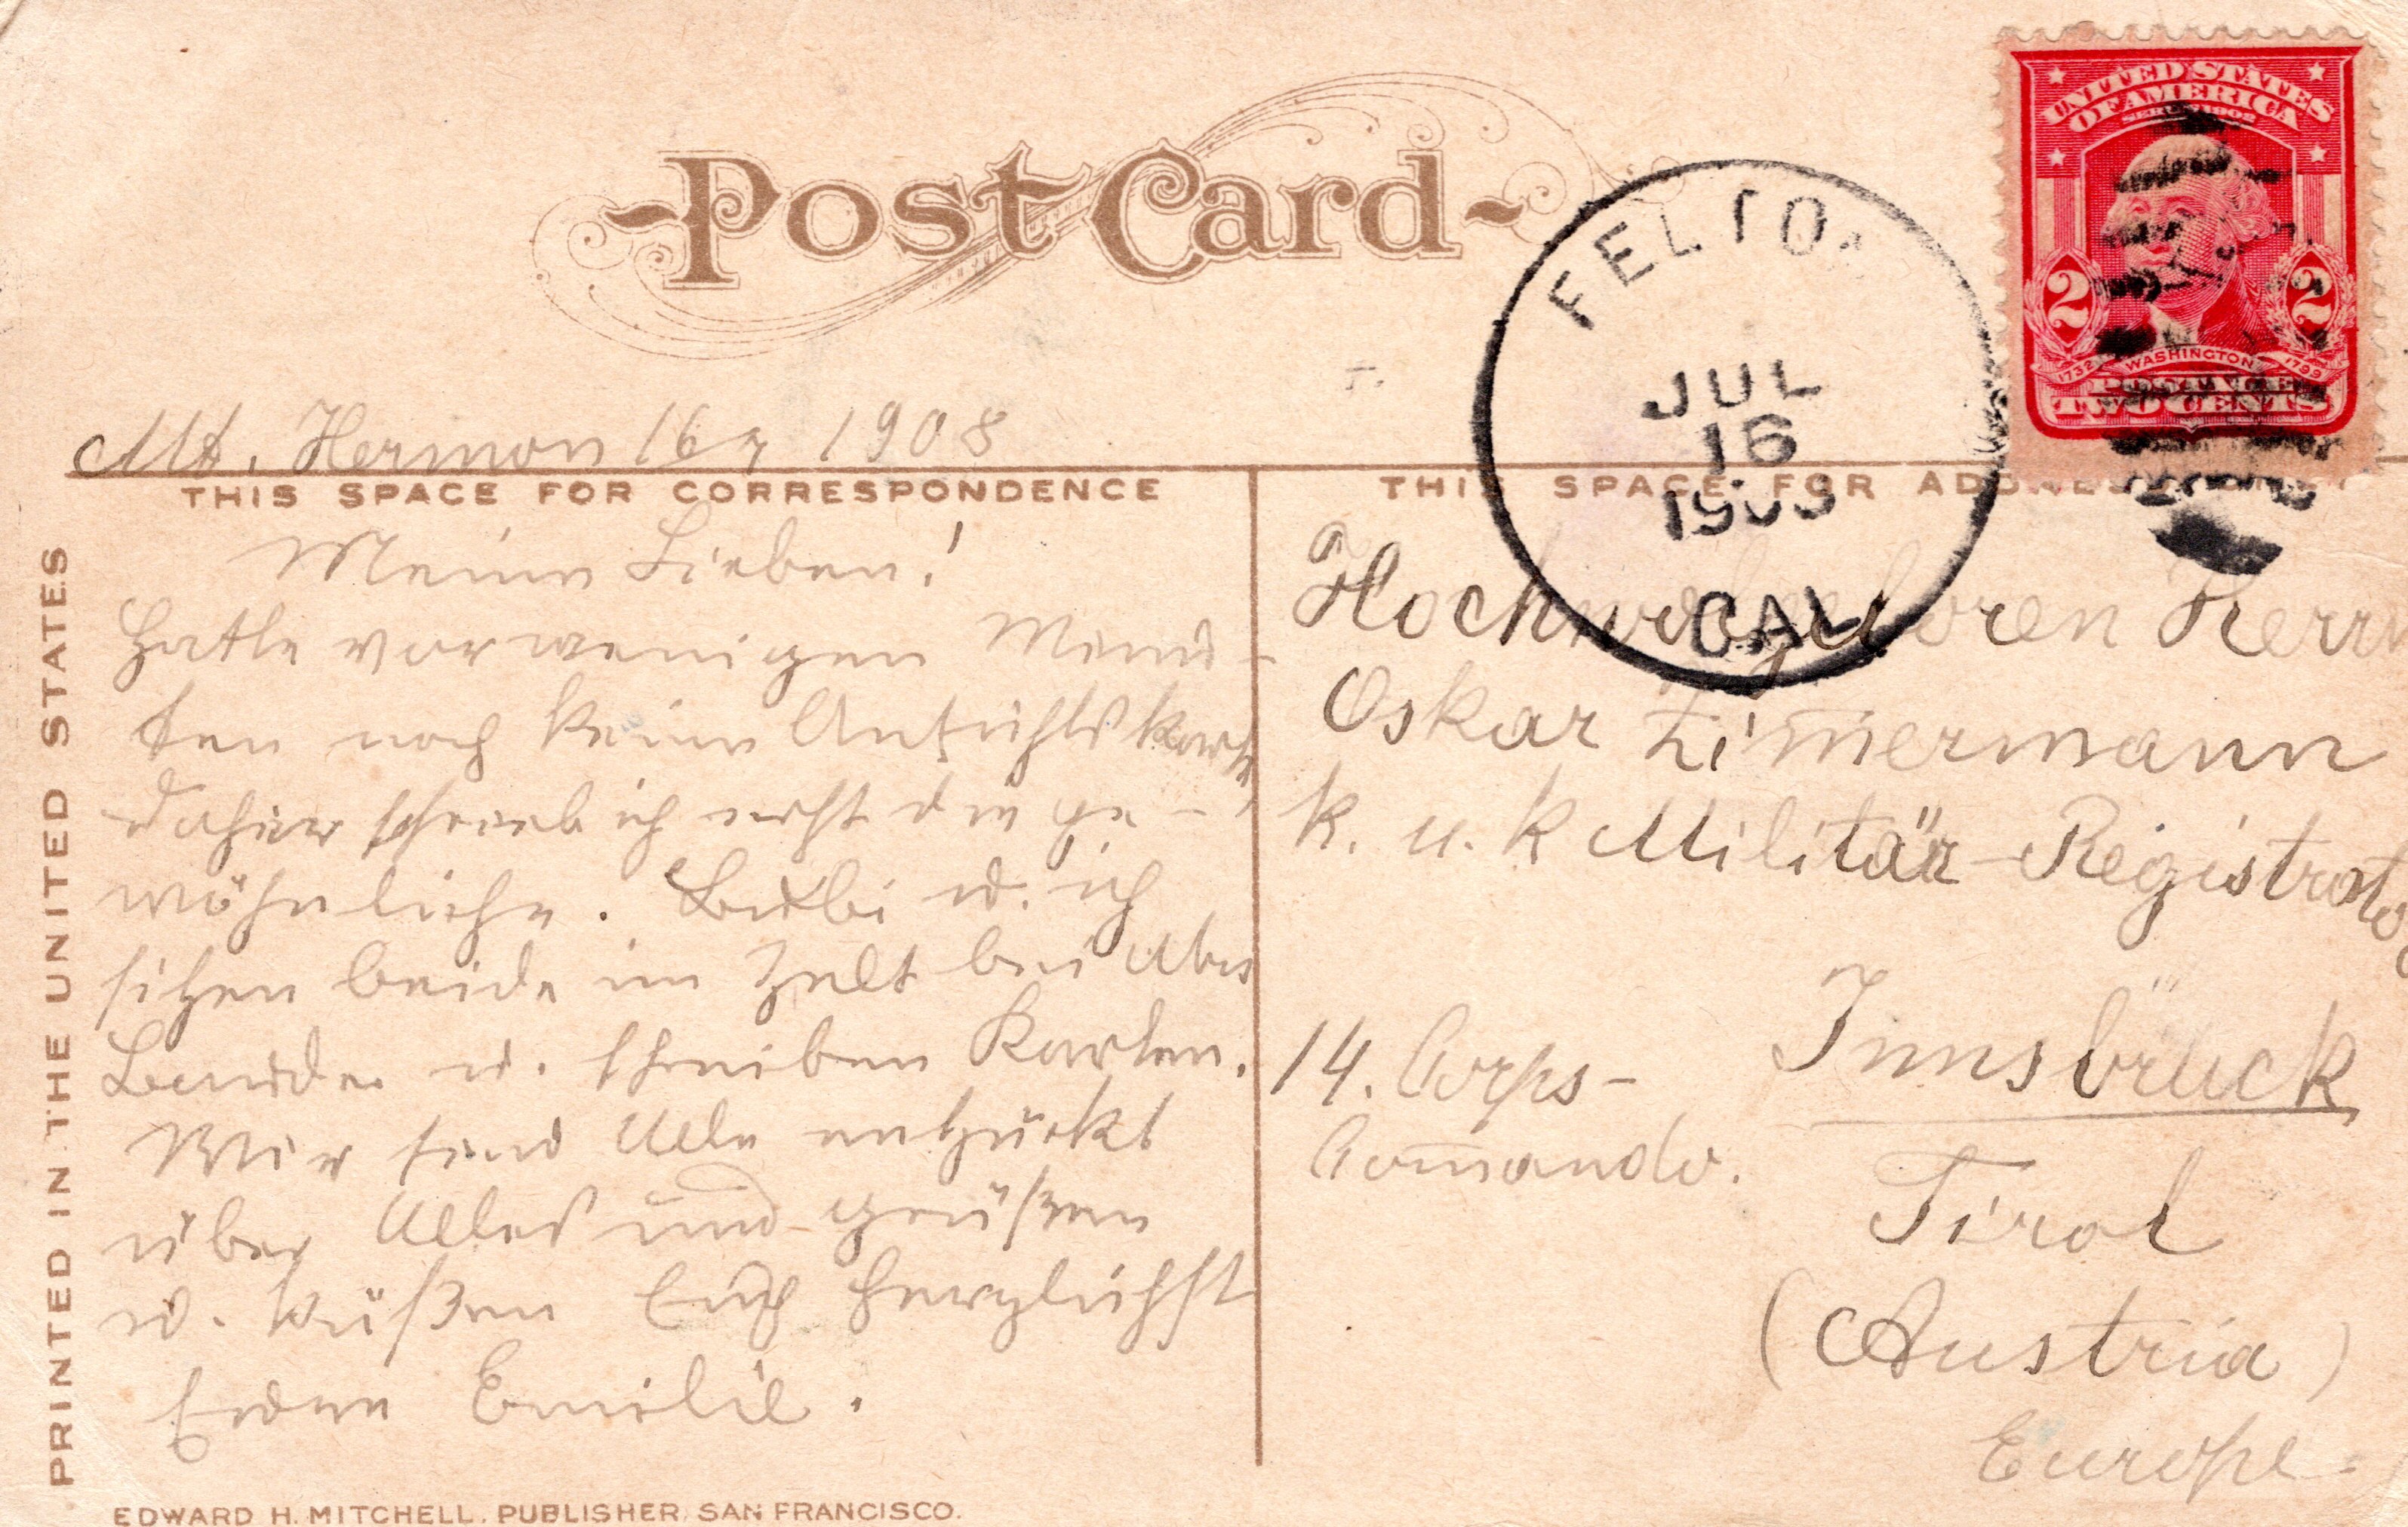 Post Card
UNITED STATES
OF AMERICA
SERIES 1902
2 2
1732 WASHINGTON 1799
POSTAGE
TWO CENTS
FELTON
JUL
16
1908
CAL
Mt. Hermon 16/7 1908
THIS SPACE FOR CORRESPONDENCE
THIS SPACE FOR ADDRESS
PRINTED IN THE UNITED STATES
Meine Lieben!
Hatte vor wenigen Minu-
ten noch keine Ansichtskarte
daher schrieb ich erst die ge-
wöhnliche. Bubi u. ich
sitzen beide im Zelt bei
u. schreiben Karten.
Wir sind Alle entzückt
über Alles und grüßen
u. küßen Euch herzlichst
Eure Emilie.
Hochwolgeboren Herrn
Oskar Zim̄ermann
k. u. k Militär-Registrator
Innsbruck
14. Corps-
Com̄ando.
Tirol
(Austria)
Europe.
EDWARD H. MITCHELL, PUBLISHER, SAN FRANCISCO.